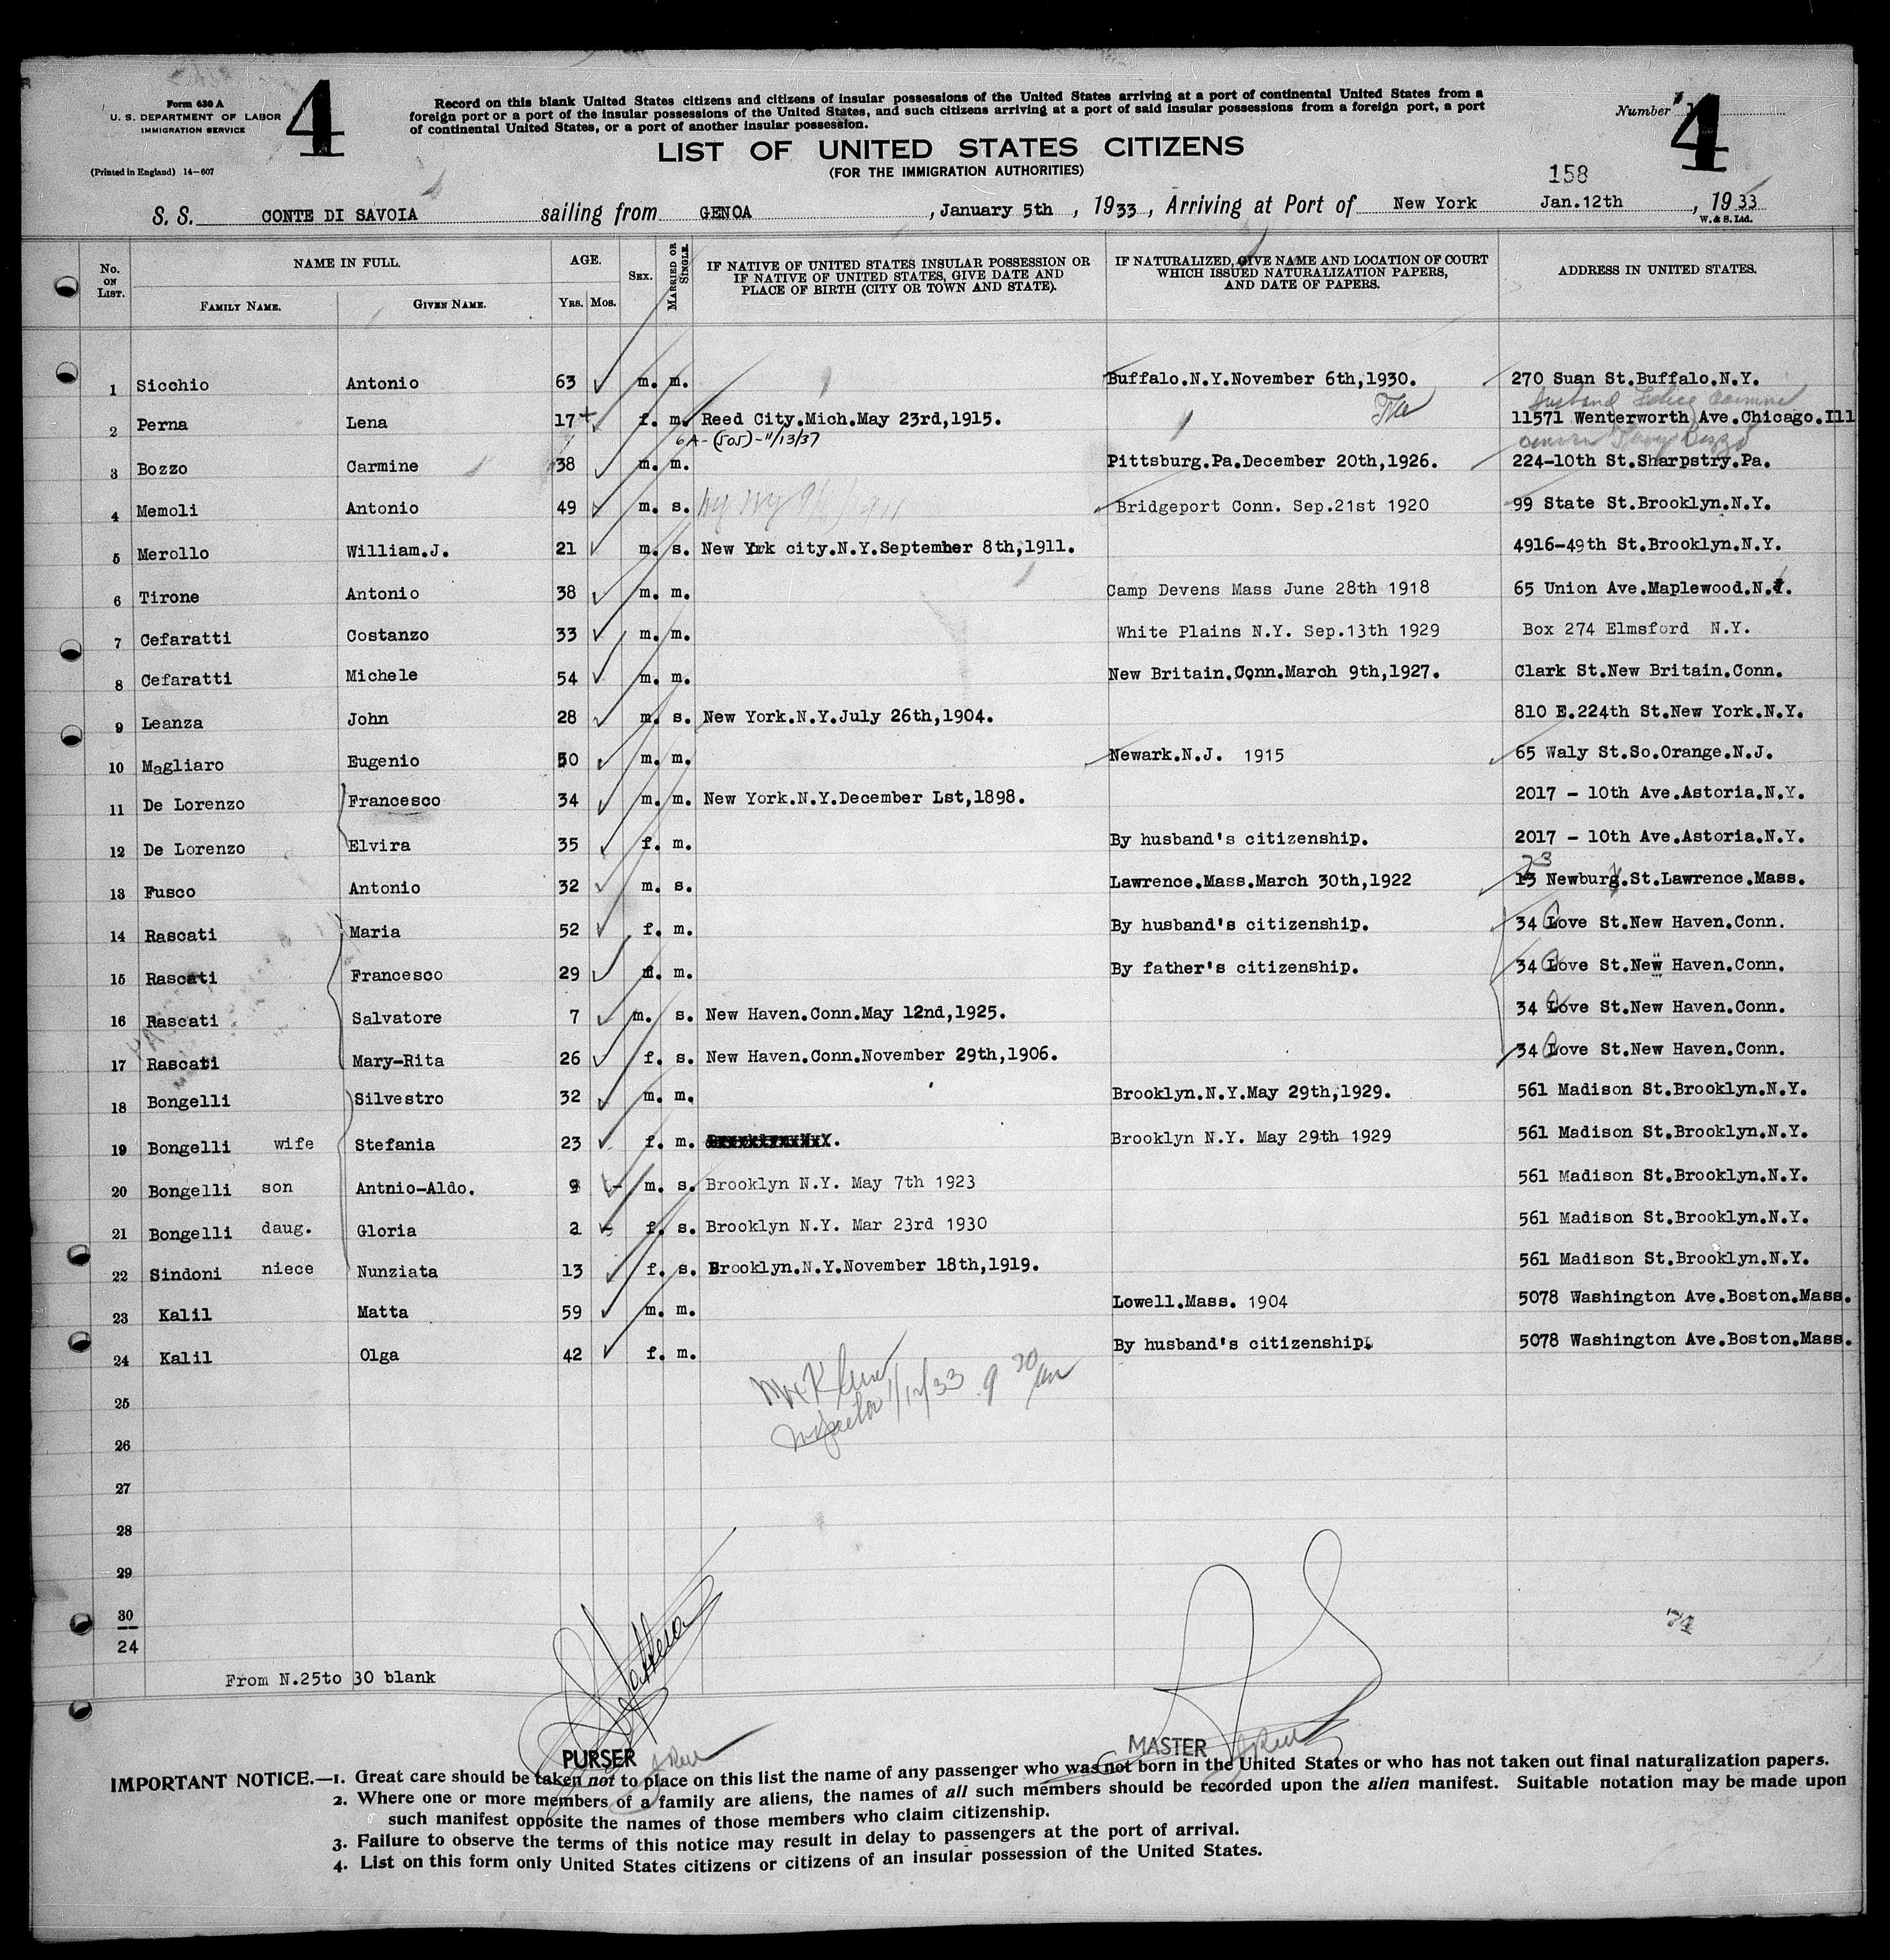 Form 630 A
U. S. DEPARTMENT OF LABOR
IMMIGRATION SERVICE
(Printed in England) 14—607
4
Record on this blank United States citizens and citizens of insular possessions of the United States arriving at a port of continental United States from a
foreign port or a port of the insular possessions of the United States, and such citizens arriving at a port of said insular possessions from a foreign port, a port
of continental United States, or a port of another insular possession.
Number 4
LIST OF UNITED STATES CITIZENS
(FOR THE IMMIGRATION AUTHORITIES)
158
S. S. CONTE DI SAVOIA sailing from GENOA , January 5th , 1933 , Arriving at Port of New York Jan.12th , 1933
W. & S. Ltd.
No. ON LIST. NAME IN FULL. FAMILY NAME. GIVEN NAME. AGE. YRS. MOS. SEX. MARRIED OR SINGLE. IF NATIVE OF UNITED STATES INSULAR POSSESSION OR IF NATIVE OF UNITED STATES, GIVE DATE AND PLACE OF BIRTH (CITY OR TOWN AND STATE). IF NATURALIZED, GIVE NAME AND LOCATION OF COURT WHICH ISSUED NATURALIZATION PAPERS, AND DATE OF PAPERS. ADDRESS IN UNITED STATES.
1 Sicchio Antonio 63 m. m. Buffalo.N.Y.November 6th,1930. 270 Suan St.Buffalo.N.Y.
2 Perna Lena 17 f. m. Reed City.Mich.May 23rd,1915. 11571 Wenterworth Ave.Chicago.Ill
6A-(505)-11/13/37
3 Bozzo Carmine 38 m. m. Pittsburg.Pa.December 20th,1926. 224-10th St.Sharpstry.Pa.
4 Memoli Antonio 49 m. s. Bridgeport Conn. Sep.21st 1920 99 State St.Brooklyn.N.Y.
5 Merollo William.J. 21 m. s. New York city.N.Y.September 8th,1911. 4916-49th St.Brooklyn.N.Y.
6 Tirone Antonio 38 m. m. Camp Devens Mass June 28th 1918 65 Union Ave.Maplewood.N.J.
7 Cefaratti Costanzo 33 m. m. White Plains N.Y. Sep.13th 1929 Box 274 Elmsford N.Y.
8 Cefaratti Michele 54 m. m. New Britain.Conn.March 9th,1927. Clark St.New Britain.Conn.
9 Leanza John 28 m. s. New York.N.Y.July 26th,1904. 810 E.224th St.New York.N.Y.
10 Magliaro Eugenio 50 m. m. Newark.N.J. 1915 65 Waly St.So.Orange.N.J.
11 De Lorenzo Francesco 34 m. m. New York.N.Y.December Lst,1898. 2017 - 10th Ave.Astoria.N.Y.
12 De Lorenzo Elvira 35 f. m. By husband's citizenship. 2017 - 10th Ave.Astoria.N.Y.
23
13 Fusco Antonio 32 m. s. Lawrence.Mass.March 30th,1922 13 Newburg.St.Lawrence.Mass.
14 Rascati Maria 52 f. m. By husband's citizenship. 34 Love St.New Haven.Conn.
15 Rascati Francesco 29 m. m. By father's citizenship. 34 Love St.New Haven.Conn.
16 Rascati Salvatore 7 m. s. New Haven.Conn.May 12nd,1925. 34 Love St.New Haven.Conn.
17 Rascati Mary-Rita 26 f. s. New Haven.Conn.November 29th,1906. 34 Love St.New Haven.Conn.
18 Bongelli Silvestro 32 m. m. Brooklyn.N.Y.May 29th,1929. 561 Madison St.Brooklyn.N.Y.
19 Bongelli wife Stefania 23 f. m. Brooklyn N.Y. May 29th 1929 561 Madison St.Brooklyn.N.Y.
20 Bongelli son Antnio-Aldo. 9 m. s. Brooklyn N.Y. May 7th 1923 561 Madison St.Brooklyn.N.Y.
21 Bongelli daug. Gloria 2 f. s. Brooklyn N.Y. Mar 23rd 1930 561 Madison St.Brooklyn.N.Y.
22 Sindoni niece Nunziata 13 f. s. Brooklyn.N.Y.November 18th,1919. 561 Madison St.Brooklyn.N.Y.
23 Kalil Matta 59 m. m. Lowell.Mass. 1904 5078 Washington Ave.Boston.Mass.
24 Kalil Olga 42 f. m. By husband's citizenship. 5078 Washington Ave.Boston.Mass.
25
Inspector 1/12/33 9 30 am
26
27
28
29
30
24
From N.25to 30 blank
PURSER
MASTER
IMPORTANT NOTICE.—1. Great care should be taken not to place on this list the name of any passenger who was not born in the United States or who has not taken out final naturalization papers.
2. Where one or more members of a family are aliens, the names of all such members should be recorded upon the alien manifest. Suitable notation may be made upon
such manifest opposite the names of those members who claim citizenship.
3. Failure to observe the terms of this notice may result in delay to passengers at the port of arrival.
4. List on this form only United States citizens or citizens of an insular possession of the United States.